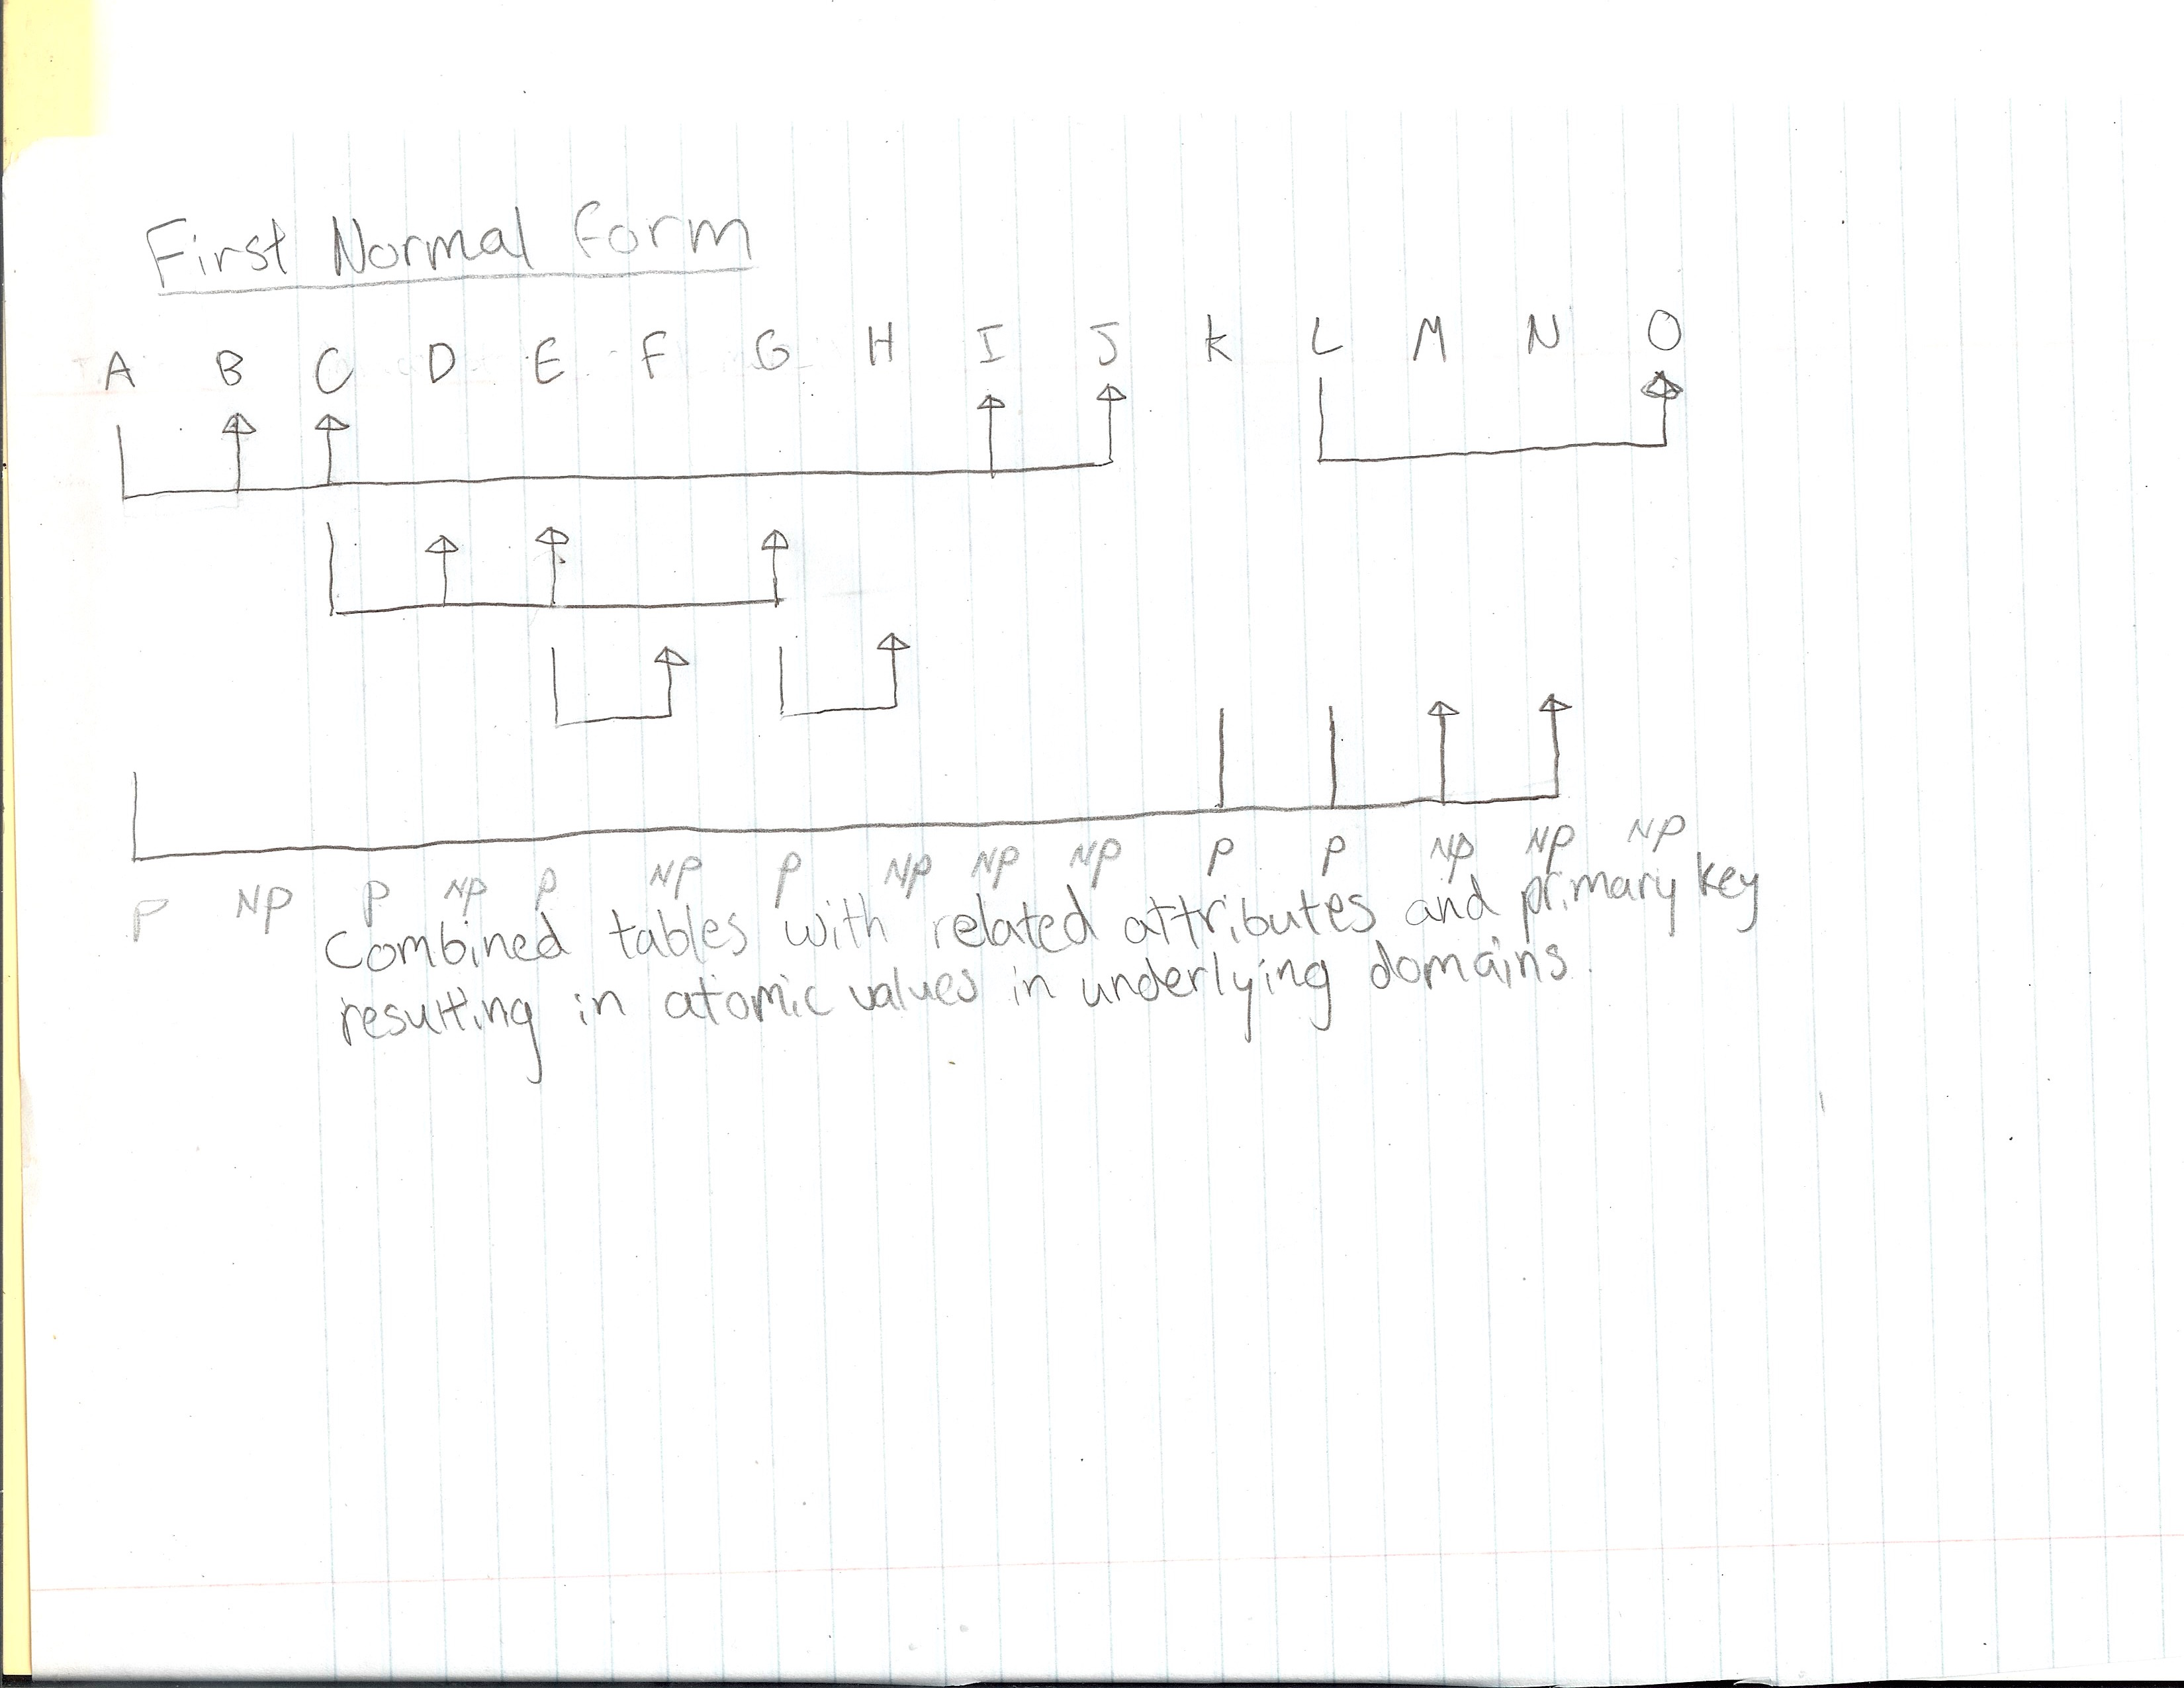 First Normal Form
A B C D E F G H I J K L M N O
P NP P NP P NP P NP NP NP P P NP NP NP
Combined tables with related attributes and primary key
resulting in atomic values in underlying domains.